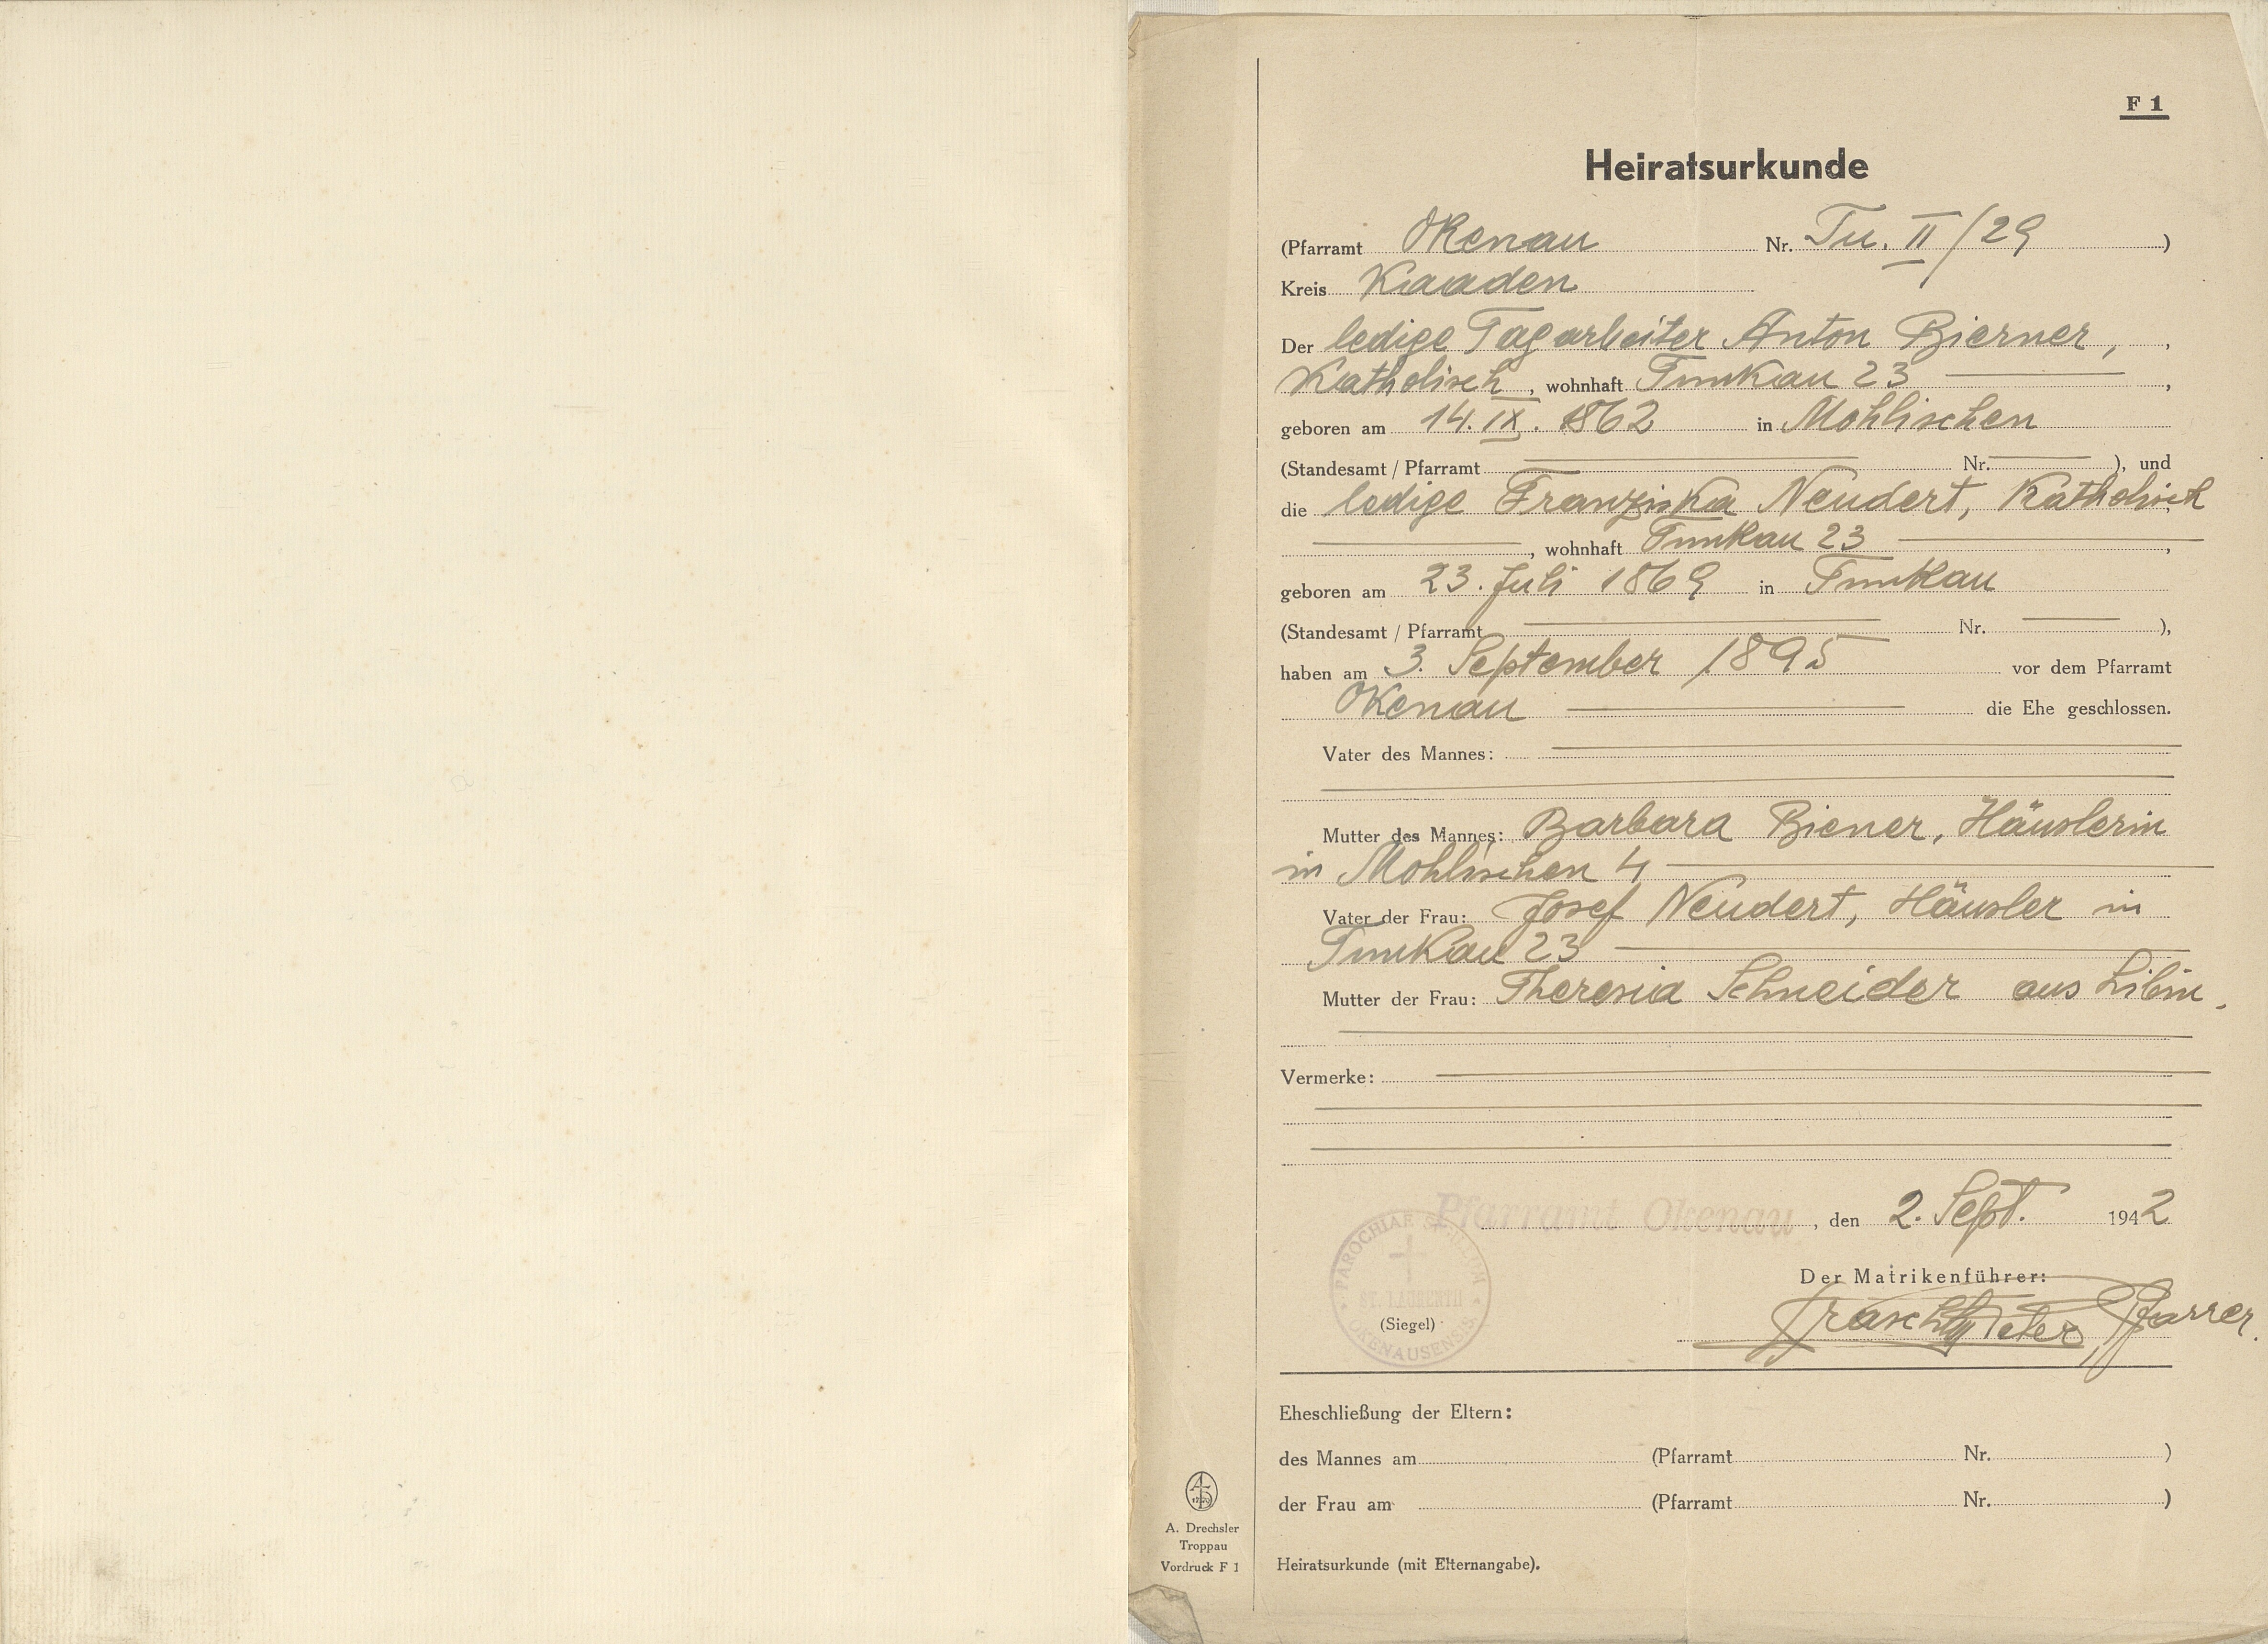 F 1
Heiratsurkunde
(Pfarramt Okenau Nr. Tu. II/29 )
Kreis Kaaden
Der ledige Tagarbeiter Anton Bierner, ,
Katholisch, wohnhaft Tunkau 23 ,
geboren am 14. IX. 1862 in Mohlischen
(Standesamt / Pfarramt Nr. ), und
die ledige Franziska Neudert, Katholisch
, wohnhaft Tunkau 23 ,
geboren am 23. Juli 1869 in Tunkau
(Standesamt / Pfarramt Nr. ),
haben am 3. September 1895 vor dem Pfarramt
Okenau die Ehe geschlossen.
Vater des Mannes:
Mutter des Mannes: Barbara Biener, Häuslerin
in Mohlischen 4
Vater der Frau: Josef Neudert, Häusler in
Tunkau 23
Mutter der Frau: Theresia Schneider aus Libin.
Vermerke:
Pfarramt Okenau, den 2. Sept. 1942
Der Matrikenführer:
Peter Pfarrer.
PAROCHIAE SIGILLUM
ST. LAURENTII
OKENAUSENSIS
(Siegel)
Eheschließung der Eltern:
des Mannes am (Pfarramt Nr. )
der Frau am (Pfarramt Nr. )
A. Drechsler
Troppau
Vordruck F 1
Heiratsurkunde (mit Elternangabe).